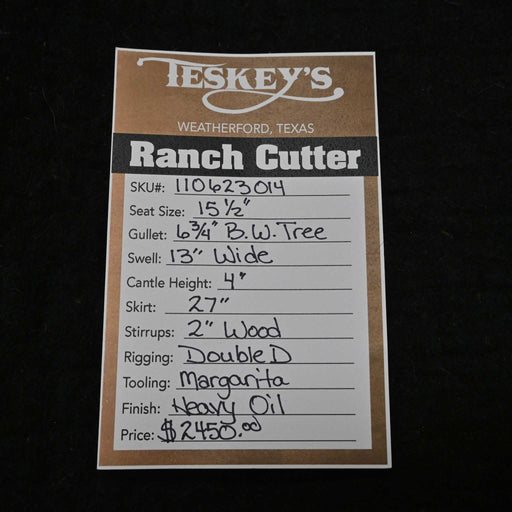 TESKEY'S
WEATHERFORD, TEXAS
Ranch Cutter
SKU#: 110623014
Seat Size: 15 1/2"
Gullet: 6 3/4" B.W. Tree
Swell: 13" Wide
Cantle Height: 4"
Skirt: 27"
Stirrups: 2" Wood
Rigging: Double D
Tooling: Margarita
Finish: Heavy Oil
Price: $2450.00